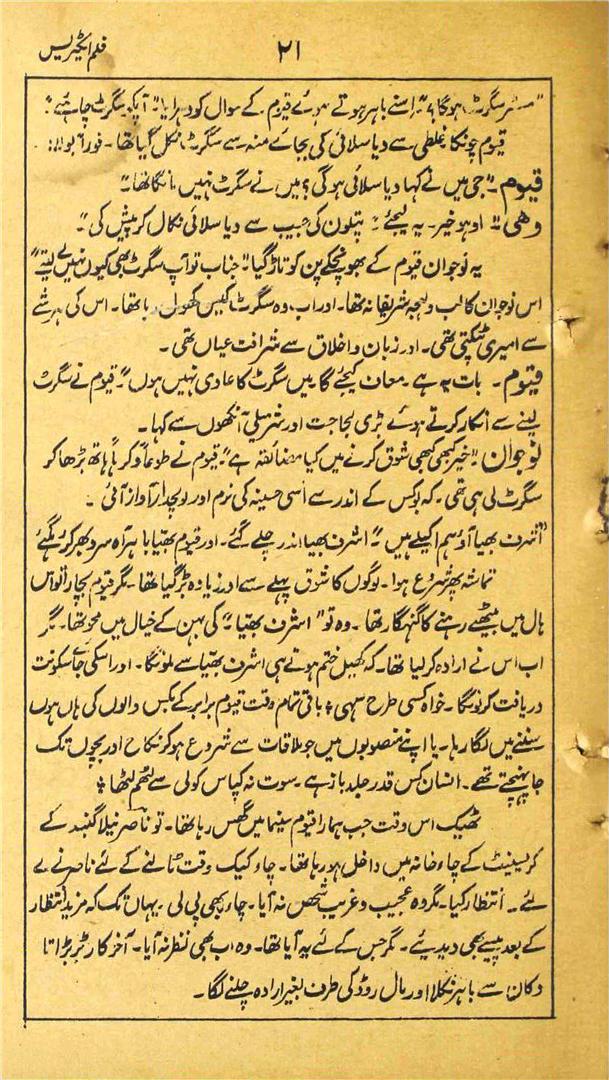 فلم ایکٹریس
۲۱
"مسٹر سگرٹ ہوگا؟" اسنے باہر ہوتے ہوئے قیوم کے سوال کو دہرایا۔" آپکو سگرٹ چاہئیے"
قیوم چونکا غلطی سے دیا سلائی کی بجائے منہ سے سگرٹ نکل گیا تھا۔ فوراً بولا:
قیوم۔" جی میں نے کہا دیا سلائی ہوگی؟ میں نے سگرٹ نہیں مانگا تھا"
وھی "اوہو خیر۔ یہ لیجئے" پتلون کی جیب سے دیا سلائی نکال کر پیش کی"۔
یہ نوجوان قیوم کے بھونچکے پن کو تاڑ گیا" جناب تو آپ سگرٹ بھی کیوں نہیں لے لیتے"
اس نوجوان کا لب و لہجہ شریفانہ تھا۔ اور اب وہ سگرٹ کیس کھول رہا تھا۔ اس کی ہر شے
سے امیری ٹپکتی تھی۔ اور زبان و اخلاق سے شرافت عیاں تھی۔
قیوم۔ بات یہ ہے۔ معاف کیجئے گا میں سگرٹ کا عادی نہیں ہوں"۔ قیوم نے سگرٹ
لینے سے انکار کرتے ہوئے بڑی لجاجت اور شرمیلی آنکھوں سے کہا۔
نوجوان" خیر کبھی کبھی شوق کرنے میں کیا مضائقہ ہے"۔ قیوم نے طوعاً و کرہاً ہاتھ بڑھا کر
سگرٹ لی ہی تھی۔ کہ بوکس کے اندر سے اُسی حسینہ کی نرم اور لوچدار آواز آئی۔
"اشرف بھیا آؤ ہم اکیلے ہیں"۔ اشرف بھیا اندر چلے گئے۔ اور قیوم بھیا باہر آہ سرد بھر کر رہ گئے
تماشہ پھر شروع ہوا۔ لوگوں کا شوق پہلے سے اور زیادہ بڑھ گیا تھا۔ مگر قیوم بچارا تو اس
ہال میں بیٹھے رہنے کا گنہگار تھا۔ وہ تو" اشرف بھیا"۔ کی بہن کے خیال میں محو تھا۔ مگر
اب اس نے ارادہ کر لیا تھا۔ کہ کھیل ختم ہوتے ہی اشرف بھیا سے ملونگا۔ اور اسکی جائے سکونت
دریافت کرونگا۔ خواہ کسی طرح سہی؛ باقی تمام وقت قیوم برابر کے بکس والوں کی ہاں ہوں
سننے میں لگا رہا۔ یا اپنے منصوبوں میں جو ملاقات سے شروع ہو کر نکاح اور بچوں تک
جا پہنچتے تھے۔ انسان کس قدر جلد باز ہے۔ سوت نہ کپاس کولی سے لٹھم لٹھا؛
ٹھیک اس وقت جب ہمارا قیوم سنیما میں گھس رہا تھا۔ تو ناصر نیلا گنبد کے
کریسینٹ کے چاء خانہ میں داخل ہو رہا تھا۔ چاء کیک وقت ٹالنے کے لئے ناصر نے لے
لئے۔ انتظار کیا۔ مگر وہ عجیب و غریب شخص نہ آیا۔ چار بھی پی لی۔ یہاں تک کہ مزید انتظار
کے بعد پیسے بھی دیدیئے۔ مگر جس کے لئے یہ آیا تھا۔ وہ اب بھی نظر نہ آیا۔ آخر کار بڑبڑاتا
دکان سے باہر نکلا اور مال روڈ کی طرف بغیر ارادہ چلنے لگا۔